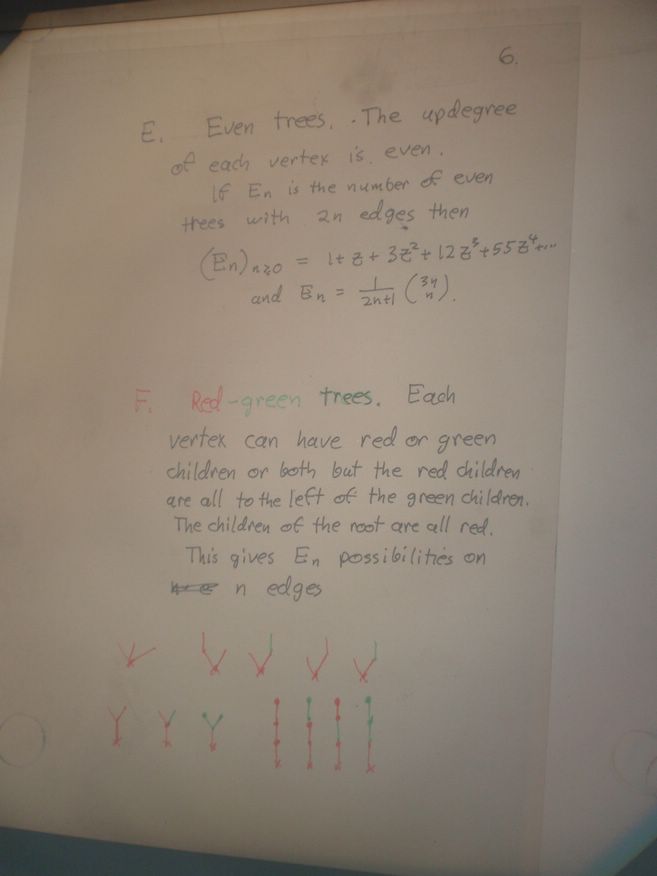 6.
E. Even trees. The updegree
of each vertex is even.
If En is the number of even
trees with 2n edges then
(En)n≥0 = 1+z+3z²+12z³+55z⁴+...
and En = 1/(2n+1) (3n n).
F. Red-green trees. Each
vertex can have red or green
children or both but the red children
are all to the left of the green children.
The children of the root are all red.
This gives En possibilities on
n edges